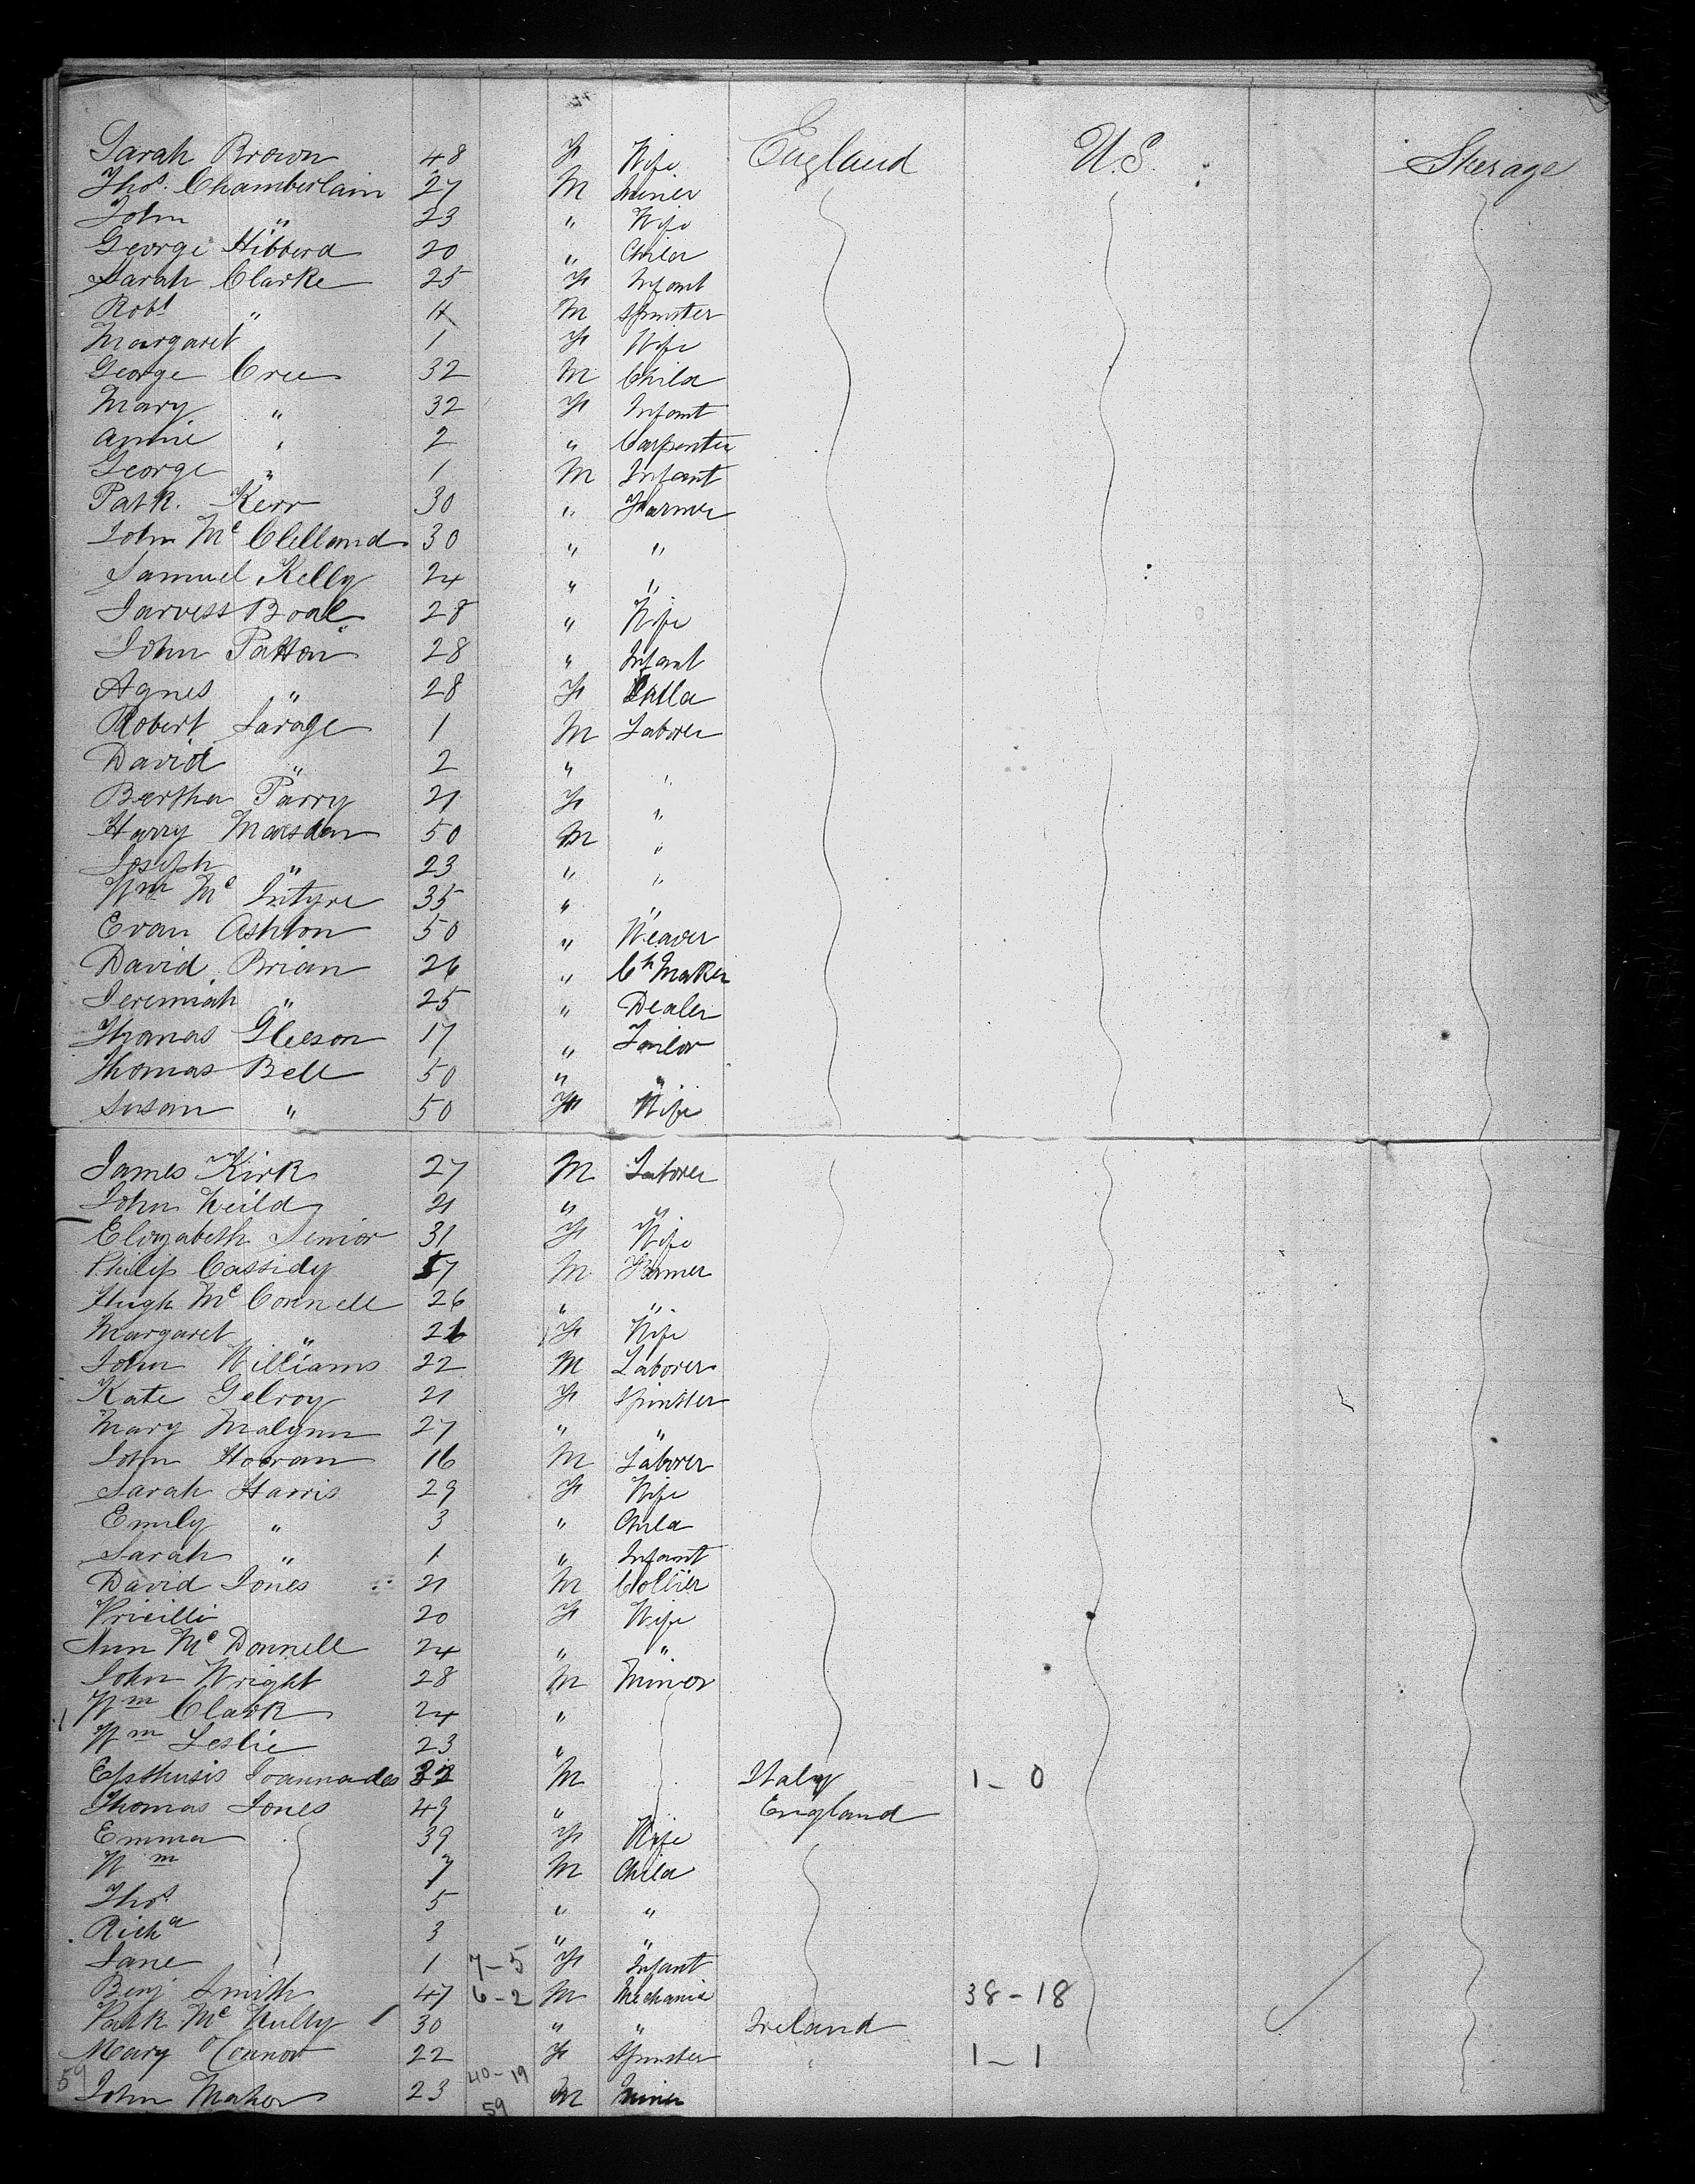 Sarah Brown 48 F Wife England U.S. Steerage
Thos. Chamberlain 27 M Miner
John " 23 " Wife
George Hibberd 20 " Child
Sarah Clarke 25 F Infant
Robt " 4 M Spinster
Margaret " 1 F Wife
George Cree 32 M Child
Mary " 32 F Infant
Annie " 2 " Carpenter
George " 1 M Infant
Patk. Kerr 30 " Farmer
John Mc Clelland 30 " "
Samuel Kelly 24 " "
Jarvess Boal 28 " Wife
John Patton 28 " Infant
Agnes " 28 F Child
Robert Savage 1 M Laborer
David " 2 " "
Bertha Parry 21 F "
Harry Marsden 50 M "
Joseph " 23 " "
Wm Mc Intyre 35 " "
Evan Ashton 50 " Weaver
David Brian 26 " Ch Maker
Jeremiah " 25 " Dealer
Thomas Gleeson 17 " Tailor
Thomas Bell 50 " "
Susan " 50 F Wife
James Kirk 27 M Laborer
John Weild 21 " "
Elizabeth Senior 31 F Wife
Philip Cassidy 57 M Farmer
Hugh Mc Connell 26 " "
Margaret " 26 F Wife
John Williams 22 M Laborer
Kate Gelroy 21 F Spinster
Mary Malynn 27 " "
John Hooran 16 M Laborer
Sarah Harris 29 F Wife
Emily " 3 " Child
Sarah " 1 " Infant
David Jones 21 M Collier
Pricilli 20 F Wife
Ann Mc Donnell 24 " "
John Wright 28 M Miner
Wm Clark 24 "
Wm Leslie 23 "
Epsthusis Joannades 32 M Italy 1-0
Thomas Jones 49 " England
Emma 39 F Wife
Wm 7 M Child
Thos 5 " "
Richd 3 " "
Jane 1 7-5 F Infant
Benj Smith 47 6-2 M Mechanic 38-18
Patk Mc Nulty 30 " " Ireland
Mary O'Connor 22 F Spinster " 1-1
59 John Maher 23 40-19 M Miner
59